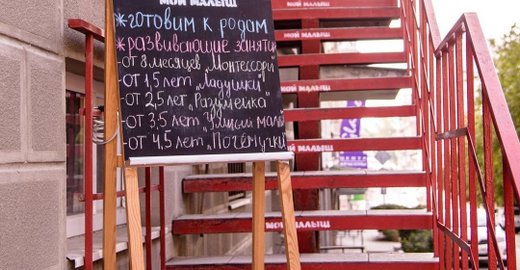 МОЙ МАЛЫШ
*ГОТОВИМ К РОДАМ
*РАЗВИВАЮЩИЕ ЗАНЯТИ
-ОТ 8 МЕСЯЦЕВ „МОНТЕССОРИ
-ОТ 1,5 ЛЕТ „ЛАДУШКИ"
-ОТ 2,5 ЛЕТ „РАЗУМЕЙКА
-ОТ 3,5 ЛЕТ „УМНЫЙ МАЛЫ
-ОТ 4,5 ЛЕТ „ПОЧЕМУЧКИ
МОЙ МАЛЫШ
МОЙ МАЛЫШ
МОЙ МАЛЫШ
МОЙ МАЛЫШ
МОЙ МАЛЫШ
МОЙ МАЛЫШ